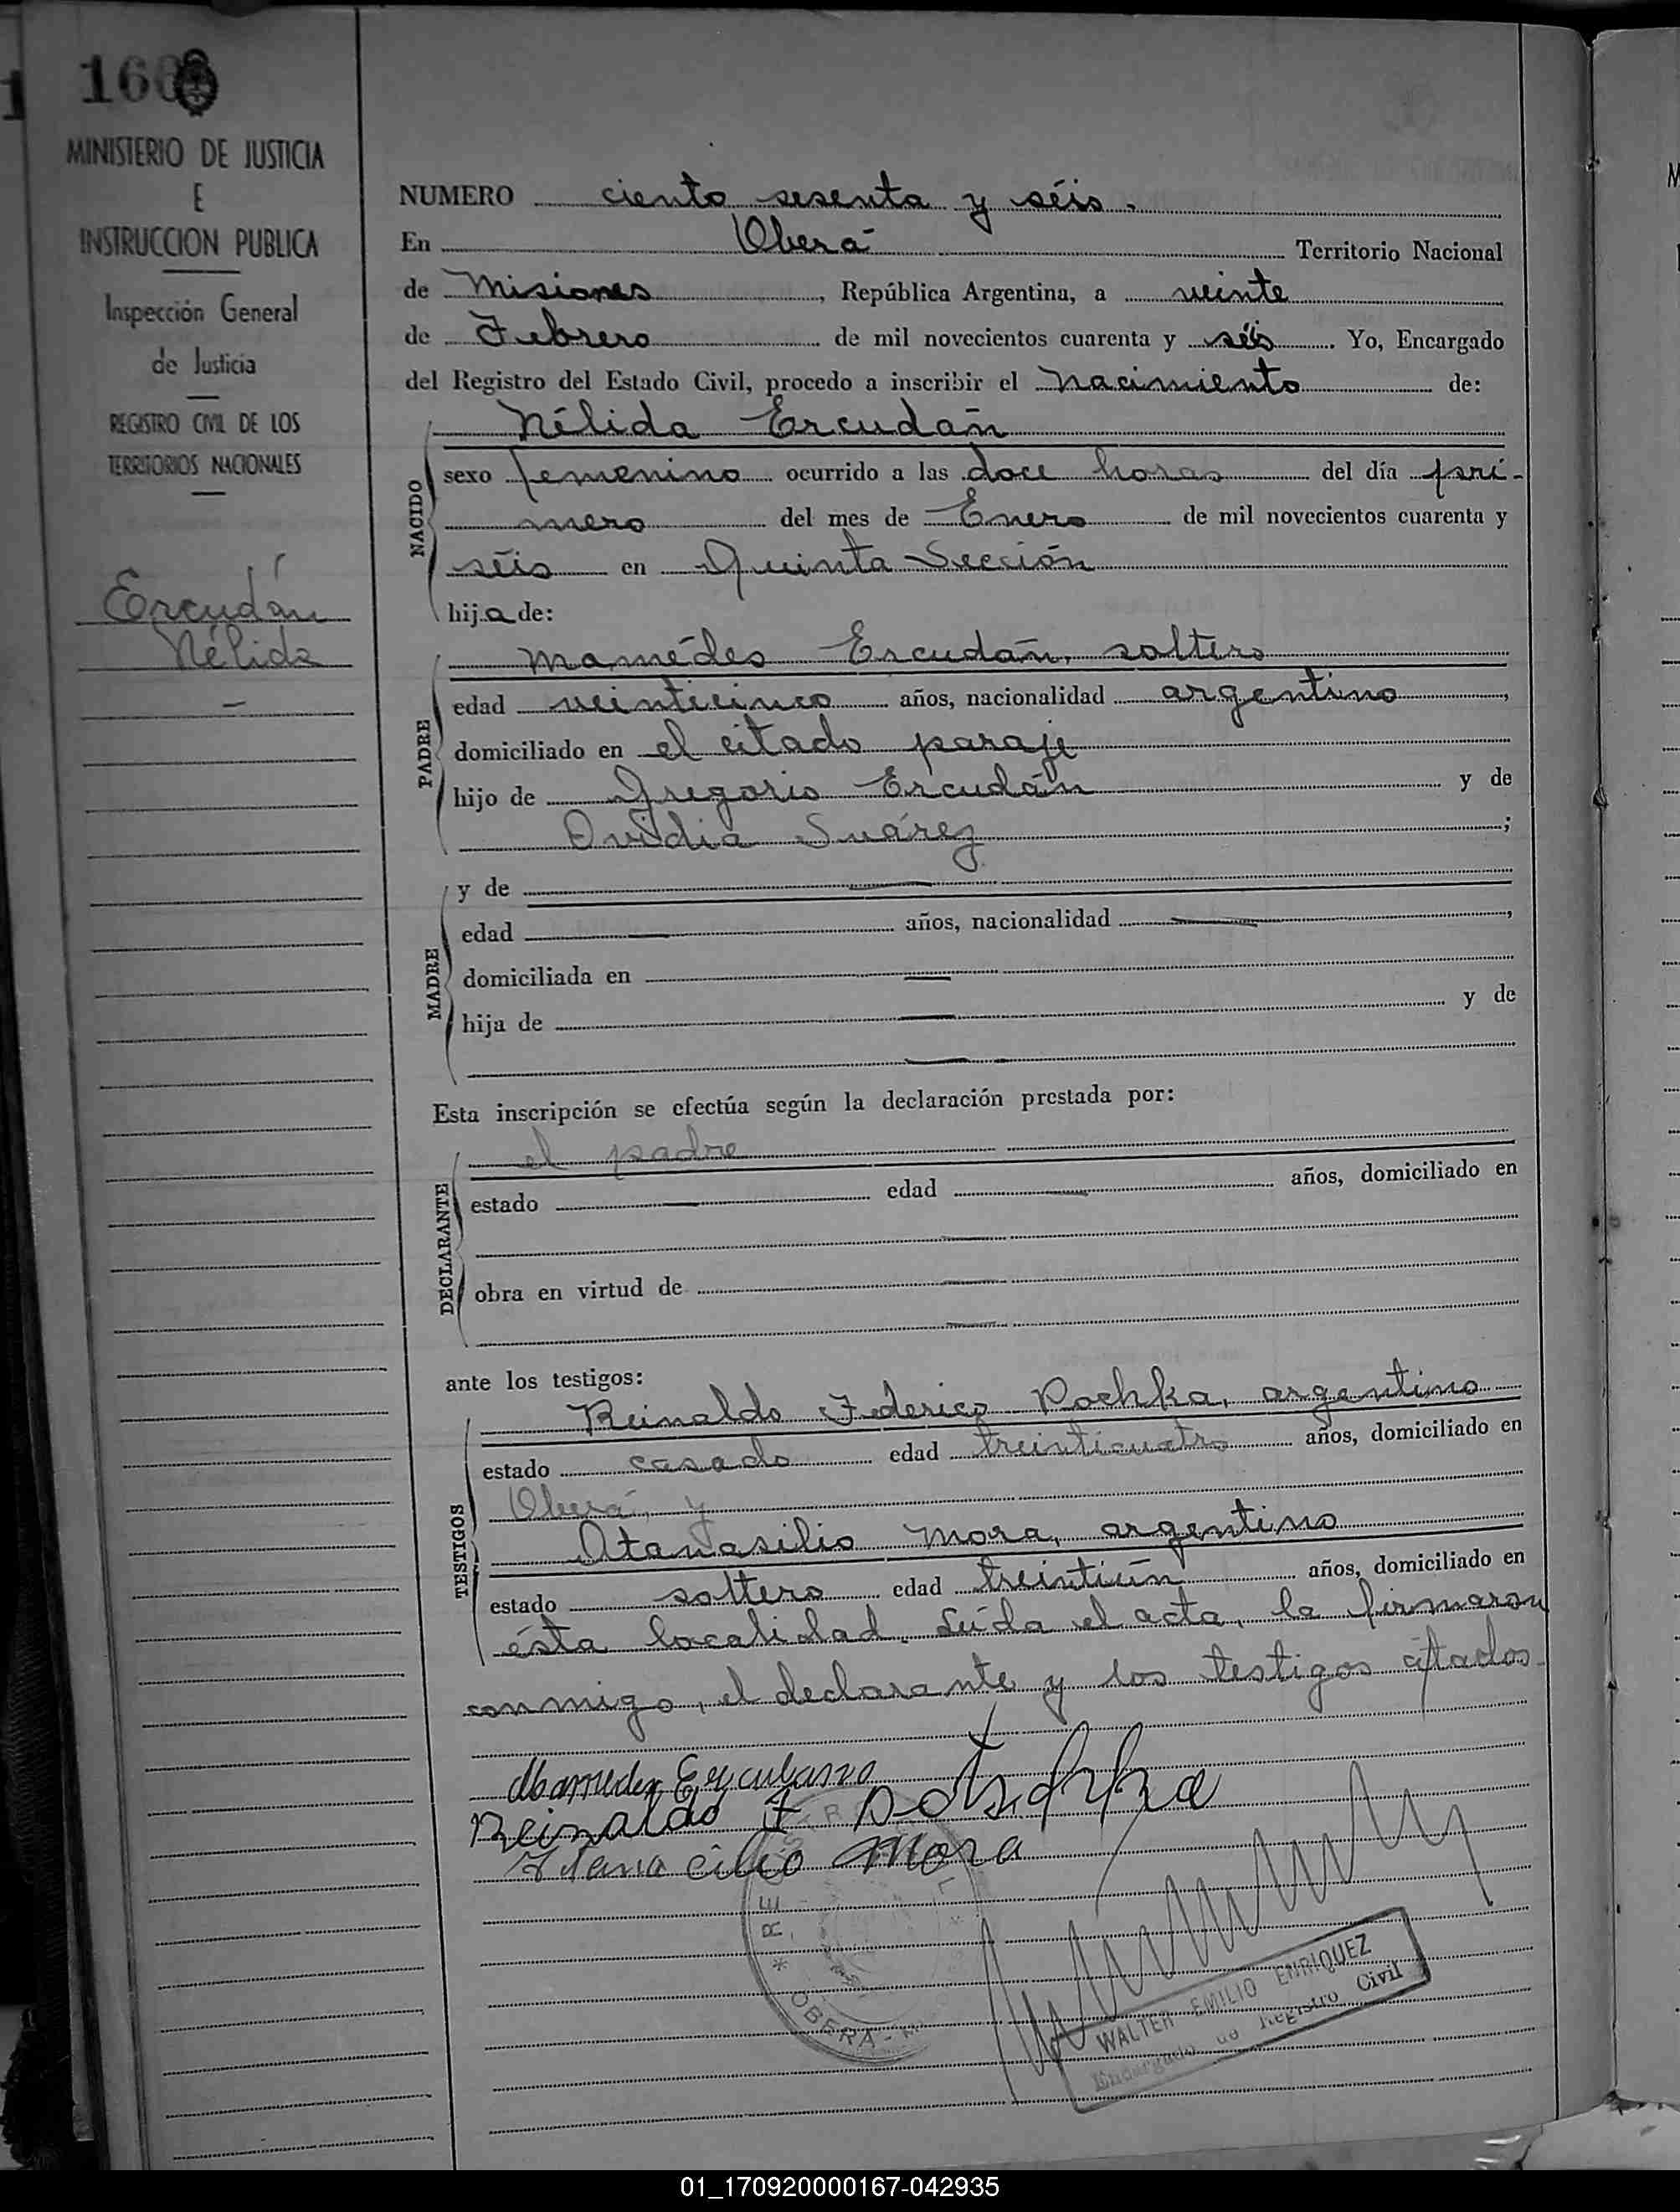 166
MINISTERIO DE JUSTICIA
E
INSTRUCCION PUBLICA
Inspección General
de Justicia
REGISTRO CIVIL DE LOS
TERRITORIOS NACIONALES
Ercudán
Nélida
NUMERO ciento sesenta y séis.
En Oberá Territorio Nacional
de Misiones, República Argentina, a veinte
de Febrero de mil novecientos cuarenta y séis. Yo, Encargado
del Registro del Estado Civil, procedo a inscribir el nacimiento de:
NACIDO
Nélida Ercudán
sexo femenino ocurrido a las doce horas del día pri-
mero del mes de Enero de mil novecientos cuarenta y
séis en Quinta Sección
hija de:
PADRE
Mamédes Ercudán, soltero
edad veinticinco años, nacionalidad argentino,
domiciliado en el citado paraje
hijo de Gregorio Ercudán y de
Ovidia Suárez;
MADRE
y de —
edad — años, nacionalidad —,
domiciliada en —
hija de — y de
—
Esta inscripción se efectúa según la declaración prestada por:
DECLARANTE
el padre
estado — edad — años, domiciliado en
—
obra en virtud de —
—
ante los testigos:
TESTIGOS
Reinaldo Federico Pochka, argentino
estado casado edad treinticuatro años, domiciliado en
Oberá, y
Atanasilio Mora, argentino
estado soltero edad treintiún años, domiciliado en
ésta localidad. Leída el acta, la firmaron
conmigo, el declarante y los testigos citados.
Reinaldo F
Mora
OBERA - M
WALTER EMILIO ENRIQUEZ
Encargado de Registro Civil
01_170920000167-042935